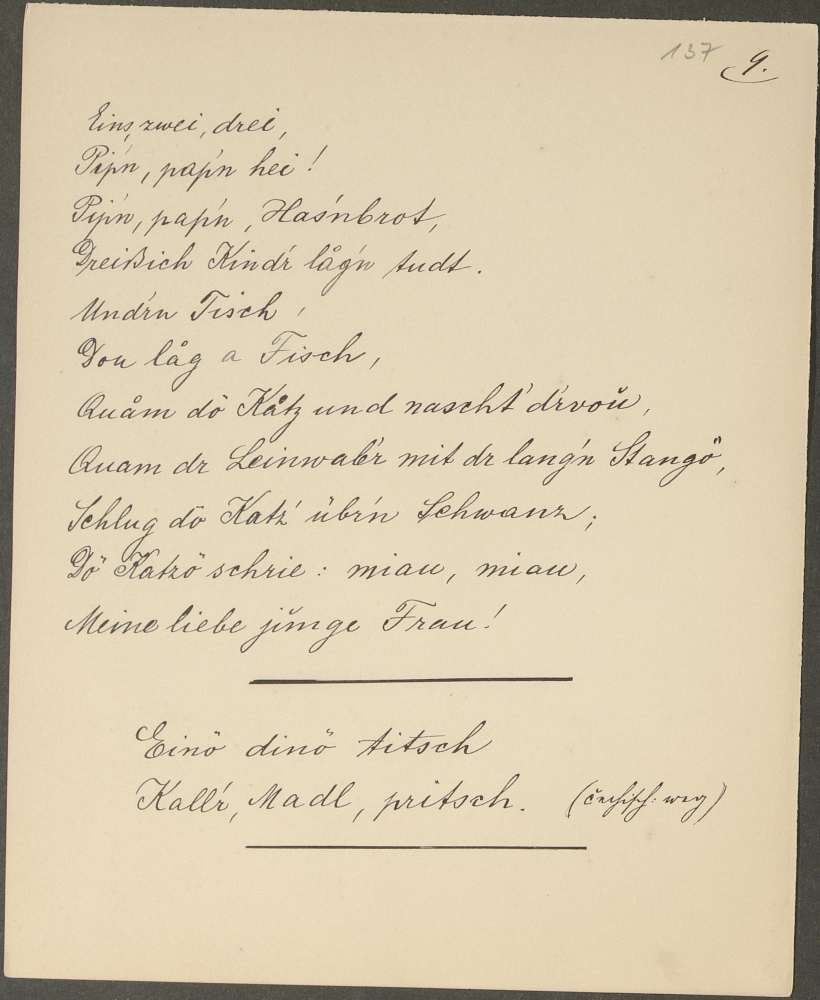 137 9.
Eins, zwei, drei,
Pip'n, pap'n hei!
Pip'n, pap'n, Has'nbrot,
Dreißich Kind'r låg'n tudt.
Und'rn Tisch,
Dou låg a Fisch,
Quåm dö Kåtz und nascht' d'rvoŭ,
Quam dr Leinwab'r mit dr lang'n Stangö,
Schlug dö Katz' übr'n Schwanz;
Dö Katzö schrie: miau, miau,
Meine liebe junge Frau!
Einö dinö titsch
Kall'r, Madl, pritsch. (čechisch: weg)